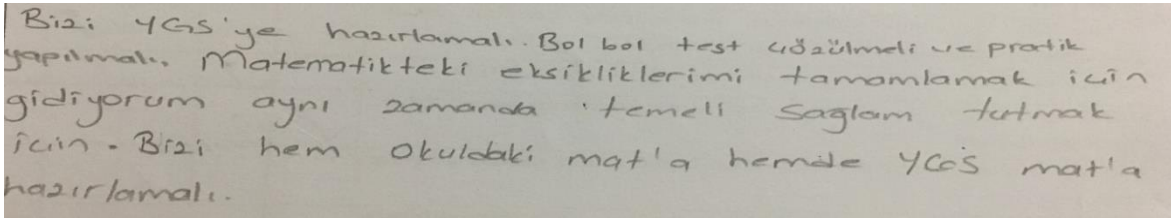 Bizi YGS'ye hazırlamalı. Bol bol test çözülmeli ve pratik
yapılmalı. Matematikteki eksikliklerimi tamamlamak için
gidiyorum aynı zamanda temeli sağlam tutmak
için. Bizi hem okuldaki mat'a hemde YGS mat'a
hazırlamalı.